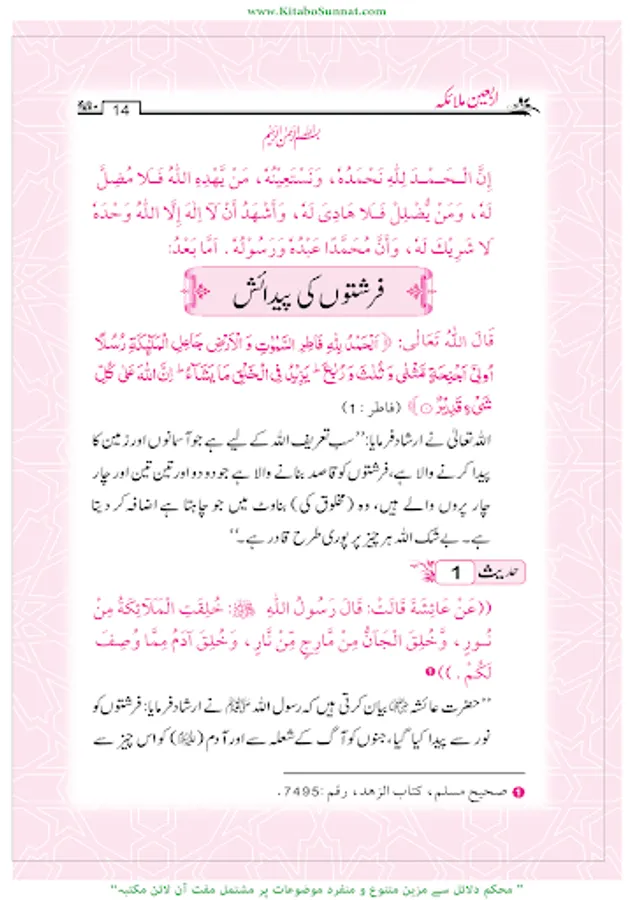 www.KitaboSunnat.com
اربعین ملائکہ
14
بسم اللہ الرحمن الرحیم
إِنَّ الْحَمْدَ لِلّٰهِ نَحْمَدُهٗ، وَنَسْتَعِيْنُهٗ، مَنْ يَّهْدِهِ اللّٰهُ فَلَا مُضِلَّ
لَهٗ، وَمَنْ يُّضْلِلْ فَلَا هَادِىَ لَهٗ، وَأَشْهَدُ أَنْ لَّا إِلٰهَ إِلَّا اللّٰهُ وَحْدَهٗ
لَا شَرِيْكَ لَهٗ، وَأَنَّ مُحَمَّدًا عَبْدُهٗ وَرَسُوْلُهٗ. اَمَّا بَعْدُ:
فرشتوں کی پیدائش
قَالَ اللّٰهُ تَعَالٰى: ﴿ اَلْحَمْدُ لِلّٰهِ فَاطِرِ السَّمٰوٰتِ وَ الْاَرْضِ جَاعِلِ الْمَلٰٓىِٕكَةِ رُسُلًا
اُولِيْۤ اَجْنِحَةٍ مَّثْنٰى وَ ثُلٰثَ وَ رُبٰعَ ؕ يَزِيْدُ فِي الْخَلْقِ مَا يَشَآءُ ؕ اِنَّ اللّٰهَ عَلٰى كُلِّ
شَيْءٍ قَدِيْرٌ ۝﴾ (فاطر : 1)
اللہ تعالیٰ نے ارشاد فرمایا: ’’سب تعریف اللہ کے لیے ہے جو آسمانوں اور زمین کا
پیدا کرنے والا ہے، فرشتوں کو قاصد بنانے والا ہے جو دو دو اور تین تین اور چار
چار پروں والے ہیں، وہ (مخلوق کی) بناوٹ میں جو چاہتا ہے اضافہ کر دیتا
ہے۔ بے شک اللہ ہر چیز پر پوری طرح قادر ہے۔‘‘
حدیث 1
((عَنْ عَائِشَةَ قَالَتْ: قَالَ رَسُوْلُ اللّٰهِ ﷺ: خُلِقَتِ الْمَلَآئِكَةُ مِنْ
نُّوْرٍ، وَّخُلِقَ الْجَآنُّ مِنْ مَّارِجٍ مِّنْ نَّارٍ، وَخُلِقَ آدَمُ مِمَّا وُصِفَ
لَكُمْ.)) ❶
’’حضرت عائشہ رضی اللہ عنہا بیان کرتی ہیں کہ رسول اللہ ﷺ نے ارشاد فرمایا: فرشتوں کو
نور سے پیدا کیا گیا، جنوں کو آگ کے شعلہ سے اور آدم (علیہ السلام) کو اس چیز سے
❶ صحیح مسلم، کتاب الزهد، رقم :7495.
" محکم دلائل سے مزین متنوع و منفرد موضوعات پر مشتمل مفت آن لائن مکتبہ "